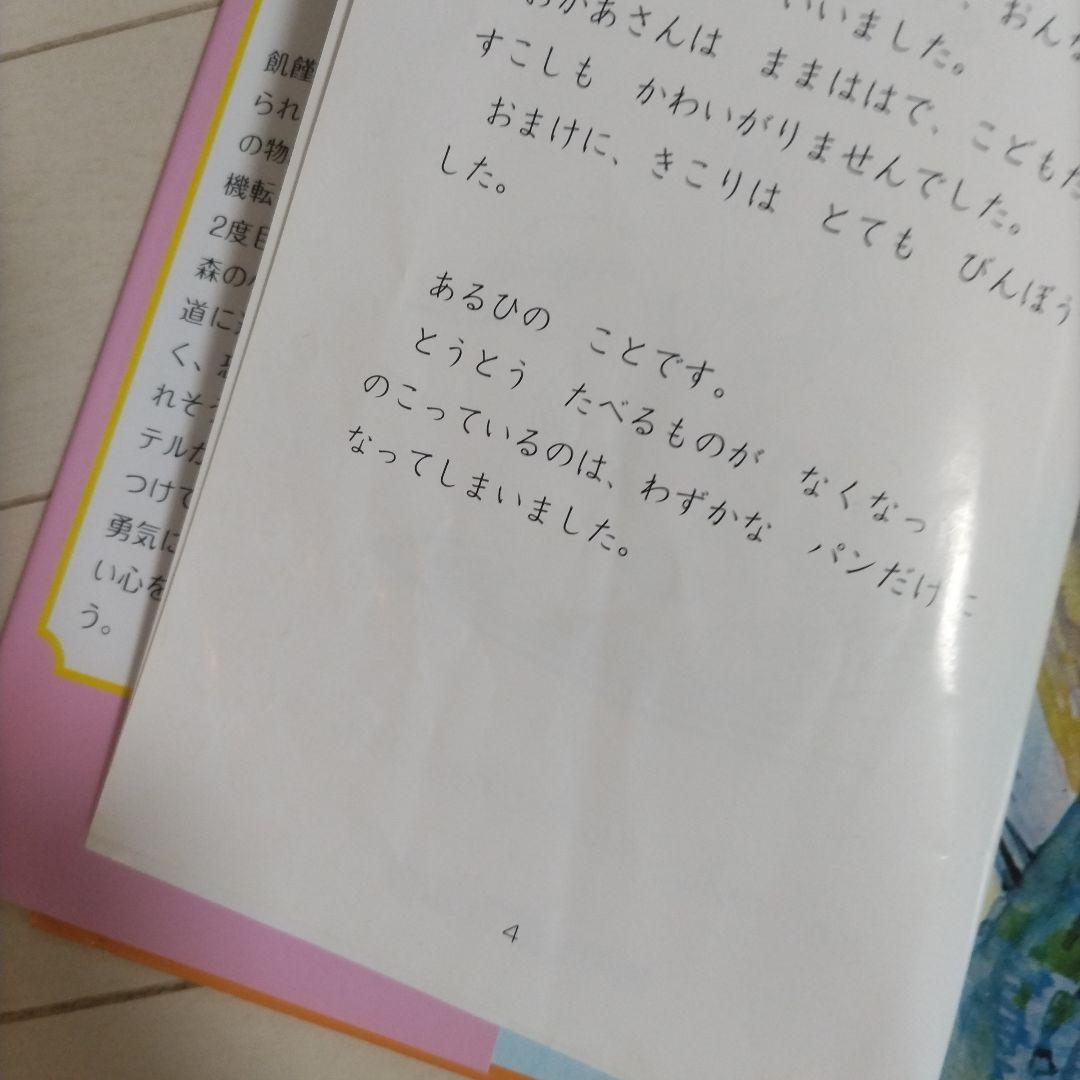 おんな
いいました。
おかあさんは　ままははで、こどもた
すこしも　かわいがりませんでした。
おまけに、きこりは　とても　びんぼう
した。
あるひの　ことです。
とうとう　たべるものが　なくなっ
のこっているのは、わずかな　パンだけに
なってしまいました。
4
飢饉
られ
の物
機転
2度目
森の
道に
く、
れそう
テルが
つけて
勇気に
い心を
う。